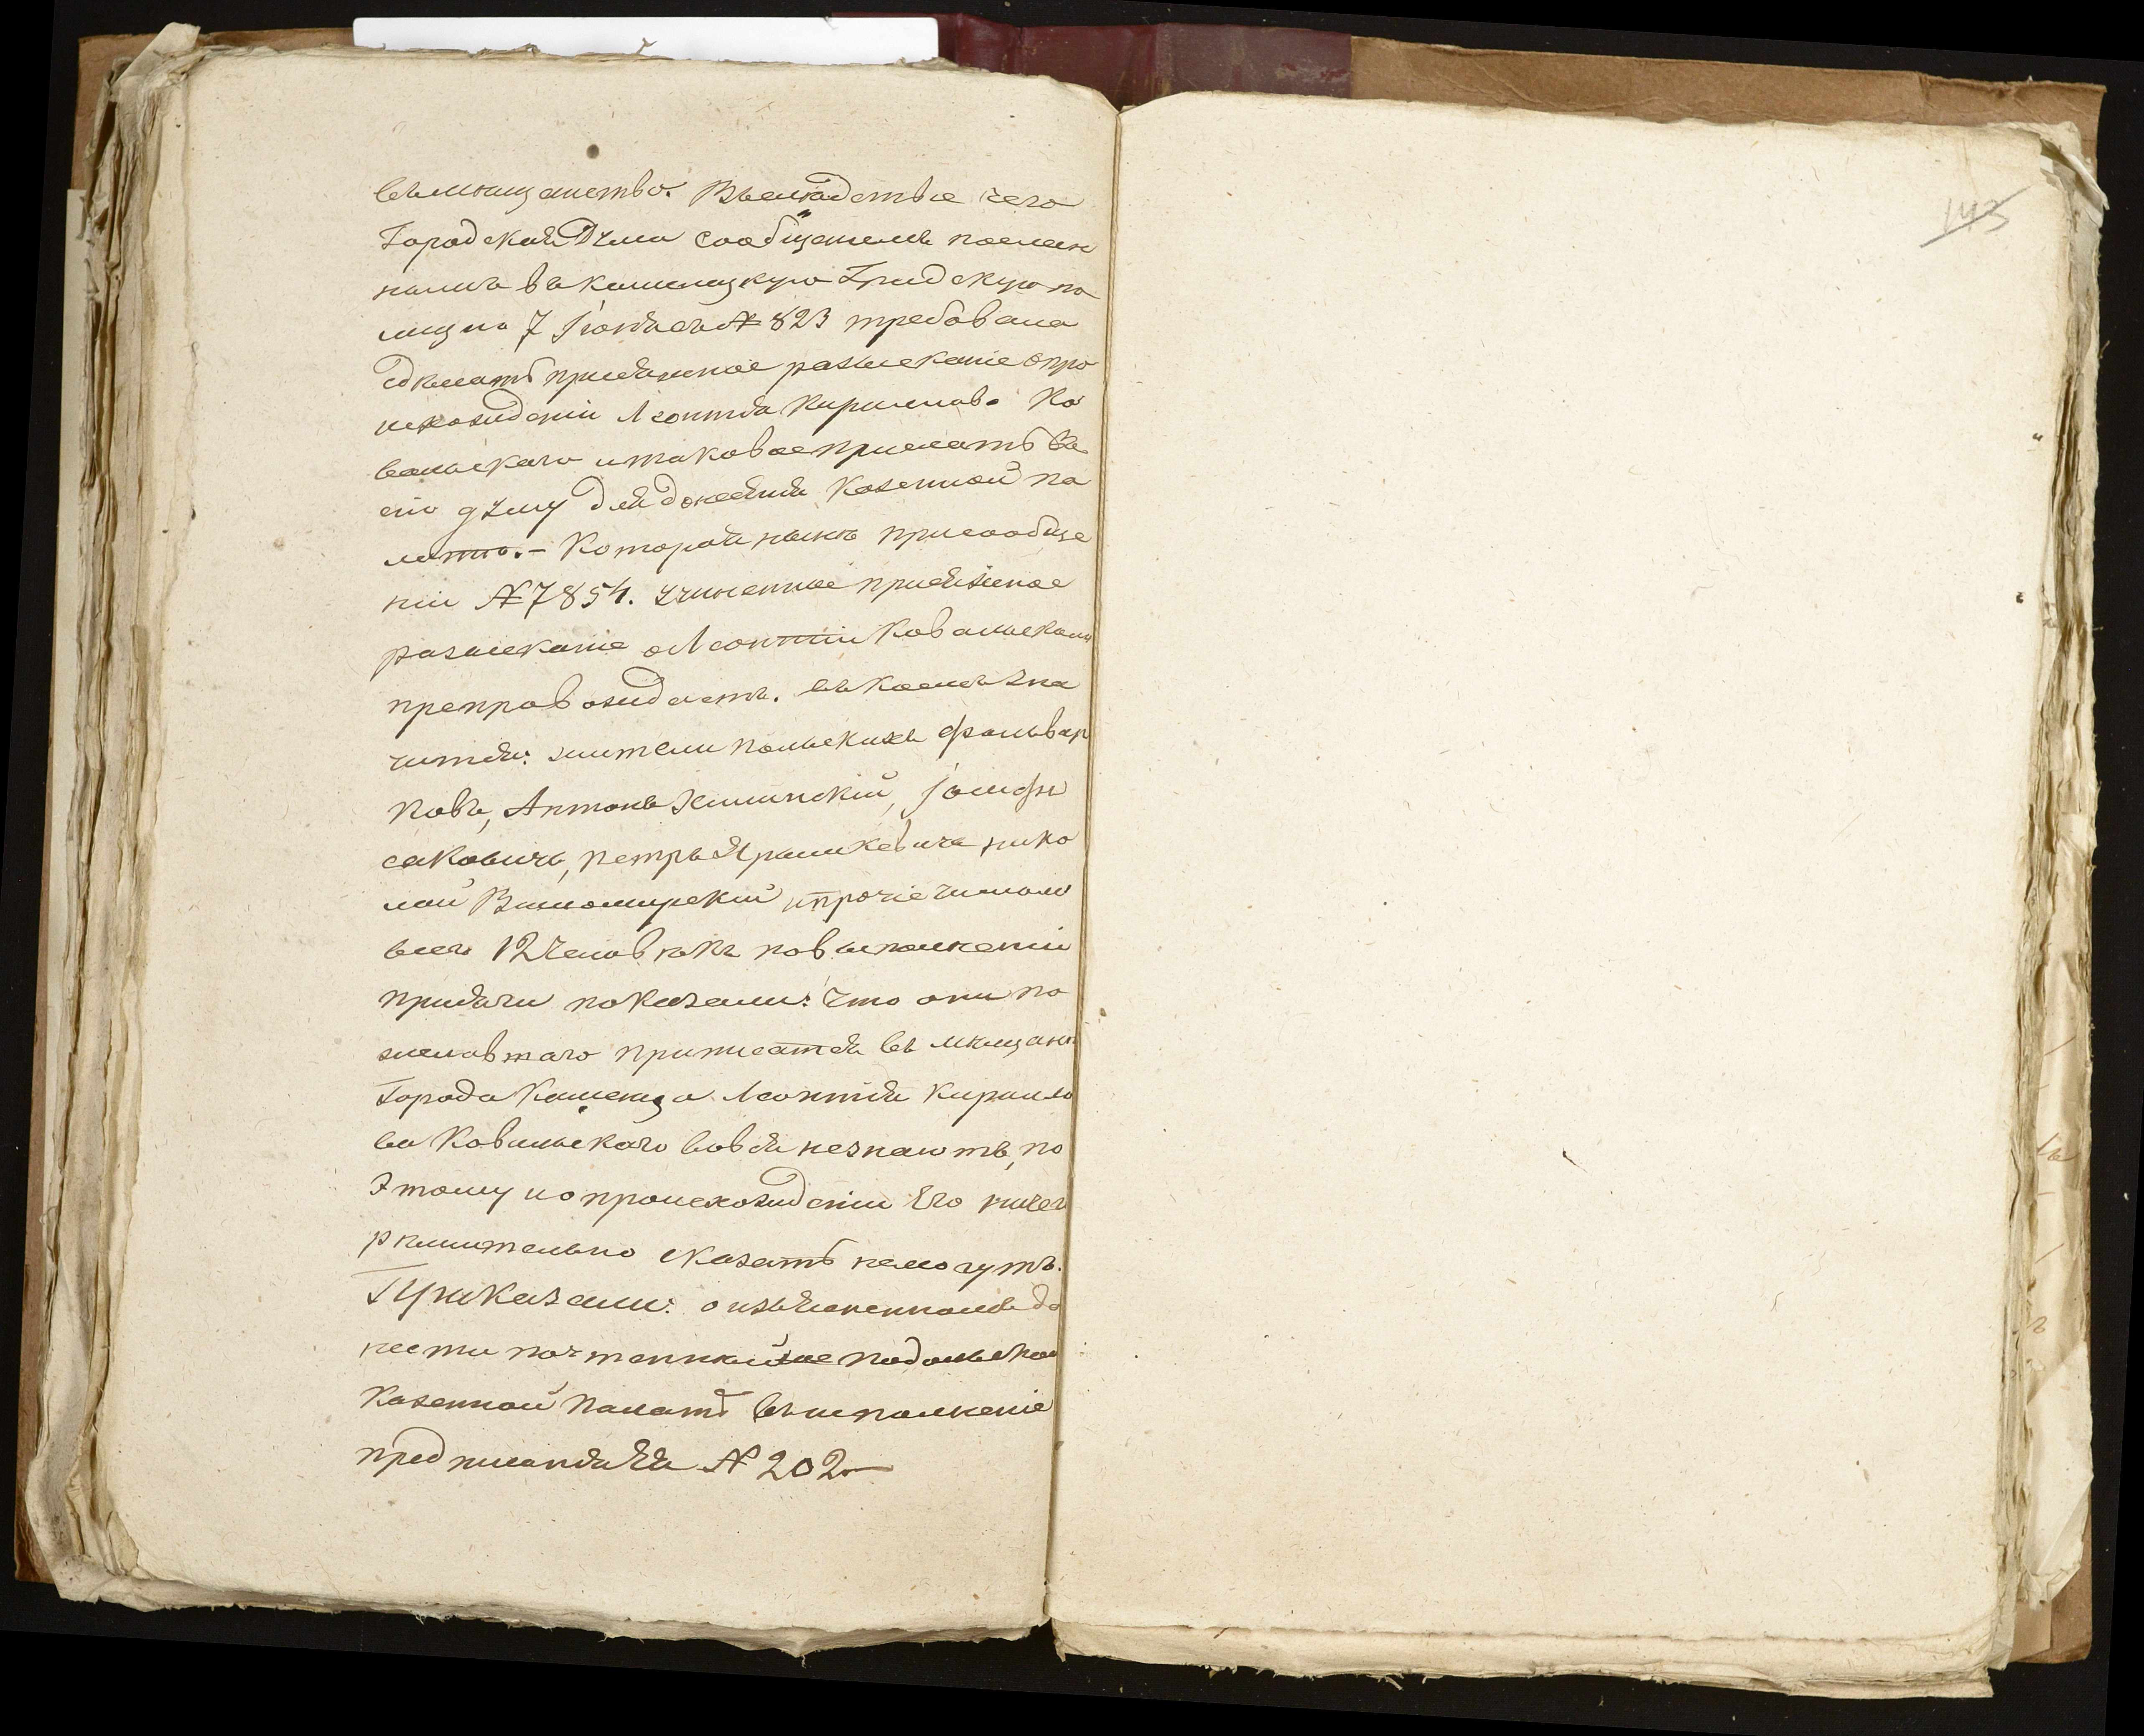 въ мѣщанство. Въ слѣдствіе чего
Городская Дума сообщеніемъ послан
нымъ въ каменецкую Градскую по
лицію 7 Іюня съ № 823 требовала
сдѣлать присяжное разысканіе о про
исхожденіи Леонтія Кирилова Ко
вальскаго и таковое прислать въ
сію думу для донесенія Казенной па
латѣ. – Которая нынѣ при сообще
ніи № 7854. учиненное присяжное
разысканіе о Леонтіи Ковальскомъ
препровождаетъ. въ коемъ зна
читъ: жители польскихъ фольвар
ковъ, Антонъ Ясинскій, Іосифъ
саковичъ, петръ Ярошкевичъ нико
лай Вишомирскій и прочіе числомъ
всего 12 человѣкъ по выполненіи
присяги показали: что они по
желавшаго приписатся въ мѣщане
Города Каменца Леонтія Кирило
ва Ковальскаго вовся незнаютъ, по
Этому и о происхожденіи Его ничего
рѣшительно сказать немогутъ.
Приказали: о изъясненномъ до
нести почтеннѣйше подольской
Казенной Палатѣ въ исполненіе
предписанія Ея № 202
143